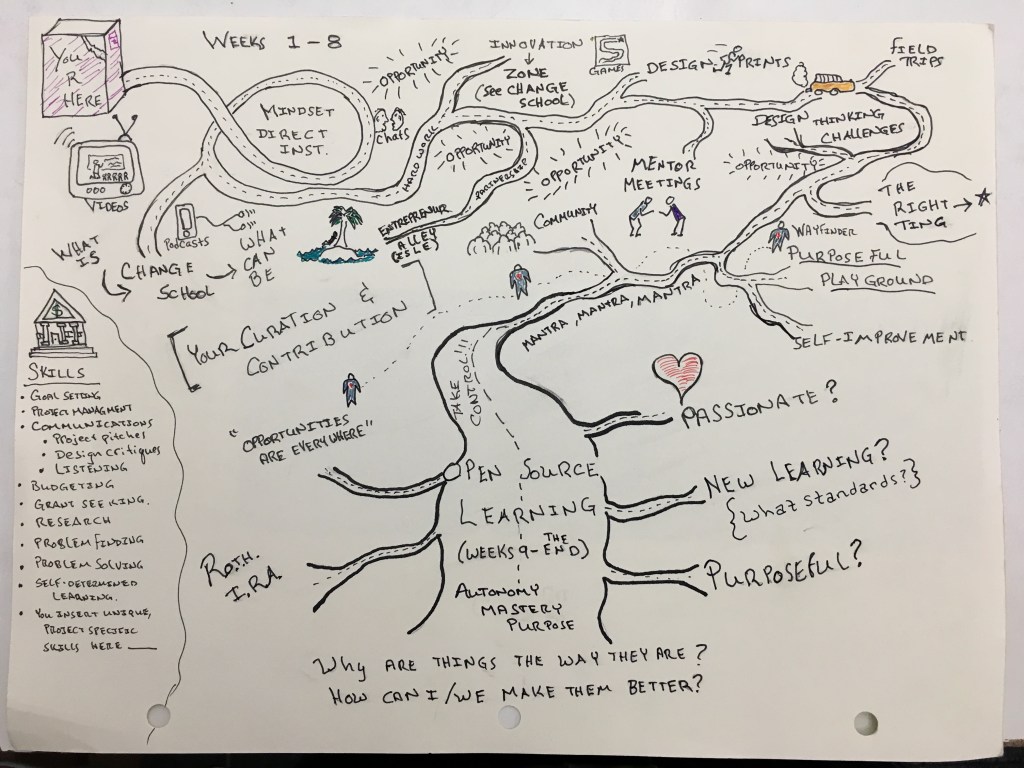 WEEKS 1-8
YOU
R
HERE
VIDEOS
MINDSET
DIRECT
INST.
OPPORTUNITY
Chats
HARD WORK
INNOVATION
ZONE
(SEE CHANGE
SCHOOL)
S
GAMES
DESIGN SPRINTS
FIELD
TRIPS
OPPORTUNITY
PARTNERSHIP
OPPORTUNITY
MENTOR
MEETINGS
DESIGN THINKING
CHALLENGES
OPPORTUNITY
THE
RIGHT →
TING
WAYFINDER
PURPOSEFUL
PLAYGROUND
SELF-IMPROVEMENT
PODCASTS
WHAT
IS
CHANGE
SCHOOL
WHAT
CAN
BE
ENTREPRENUR
ALLEY
(ISLE)
COMMUNITY
MANTRA, MANTRA, MANTRA
[YOUR CURATION &
CONTRIBUTION]
TAKE
CONTROL!!!
"OPPORTUNITIES
ARE EVERYWHERE"
$
SKILLS
• GOAL SETTING
• PROJECT MANAGMENT
• COMMUNICATIONS
• Project pitches
• Design critiques
• LISTENING
• BUDGETING
• GRANT SEEKING.
• RESEARCH
• PROBLEM FINDING
• PROBLEM SOLVING
• SELF-DETERMINED
LEARNING.
• YOU INSERT UNIQUE,
PROJECT SPECIFIC
SKILLS HERE ___
PASSIONATE?
OPEN SOURCE
LEARNING
(WEEKS 9-THE END)
AUTONOMY
MASTERY
PURPOSE
NEW LEARNING?
{What standards?}
PURPOSEFUL?
ROTH.
I.R.A.
Why ARE THINGS THE WAY THEY ARE?
HOW CAN I/WE MAKE THEM BETTER?